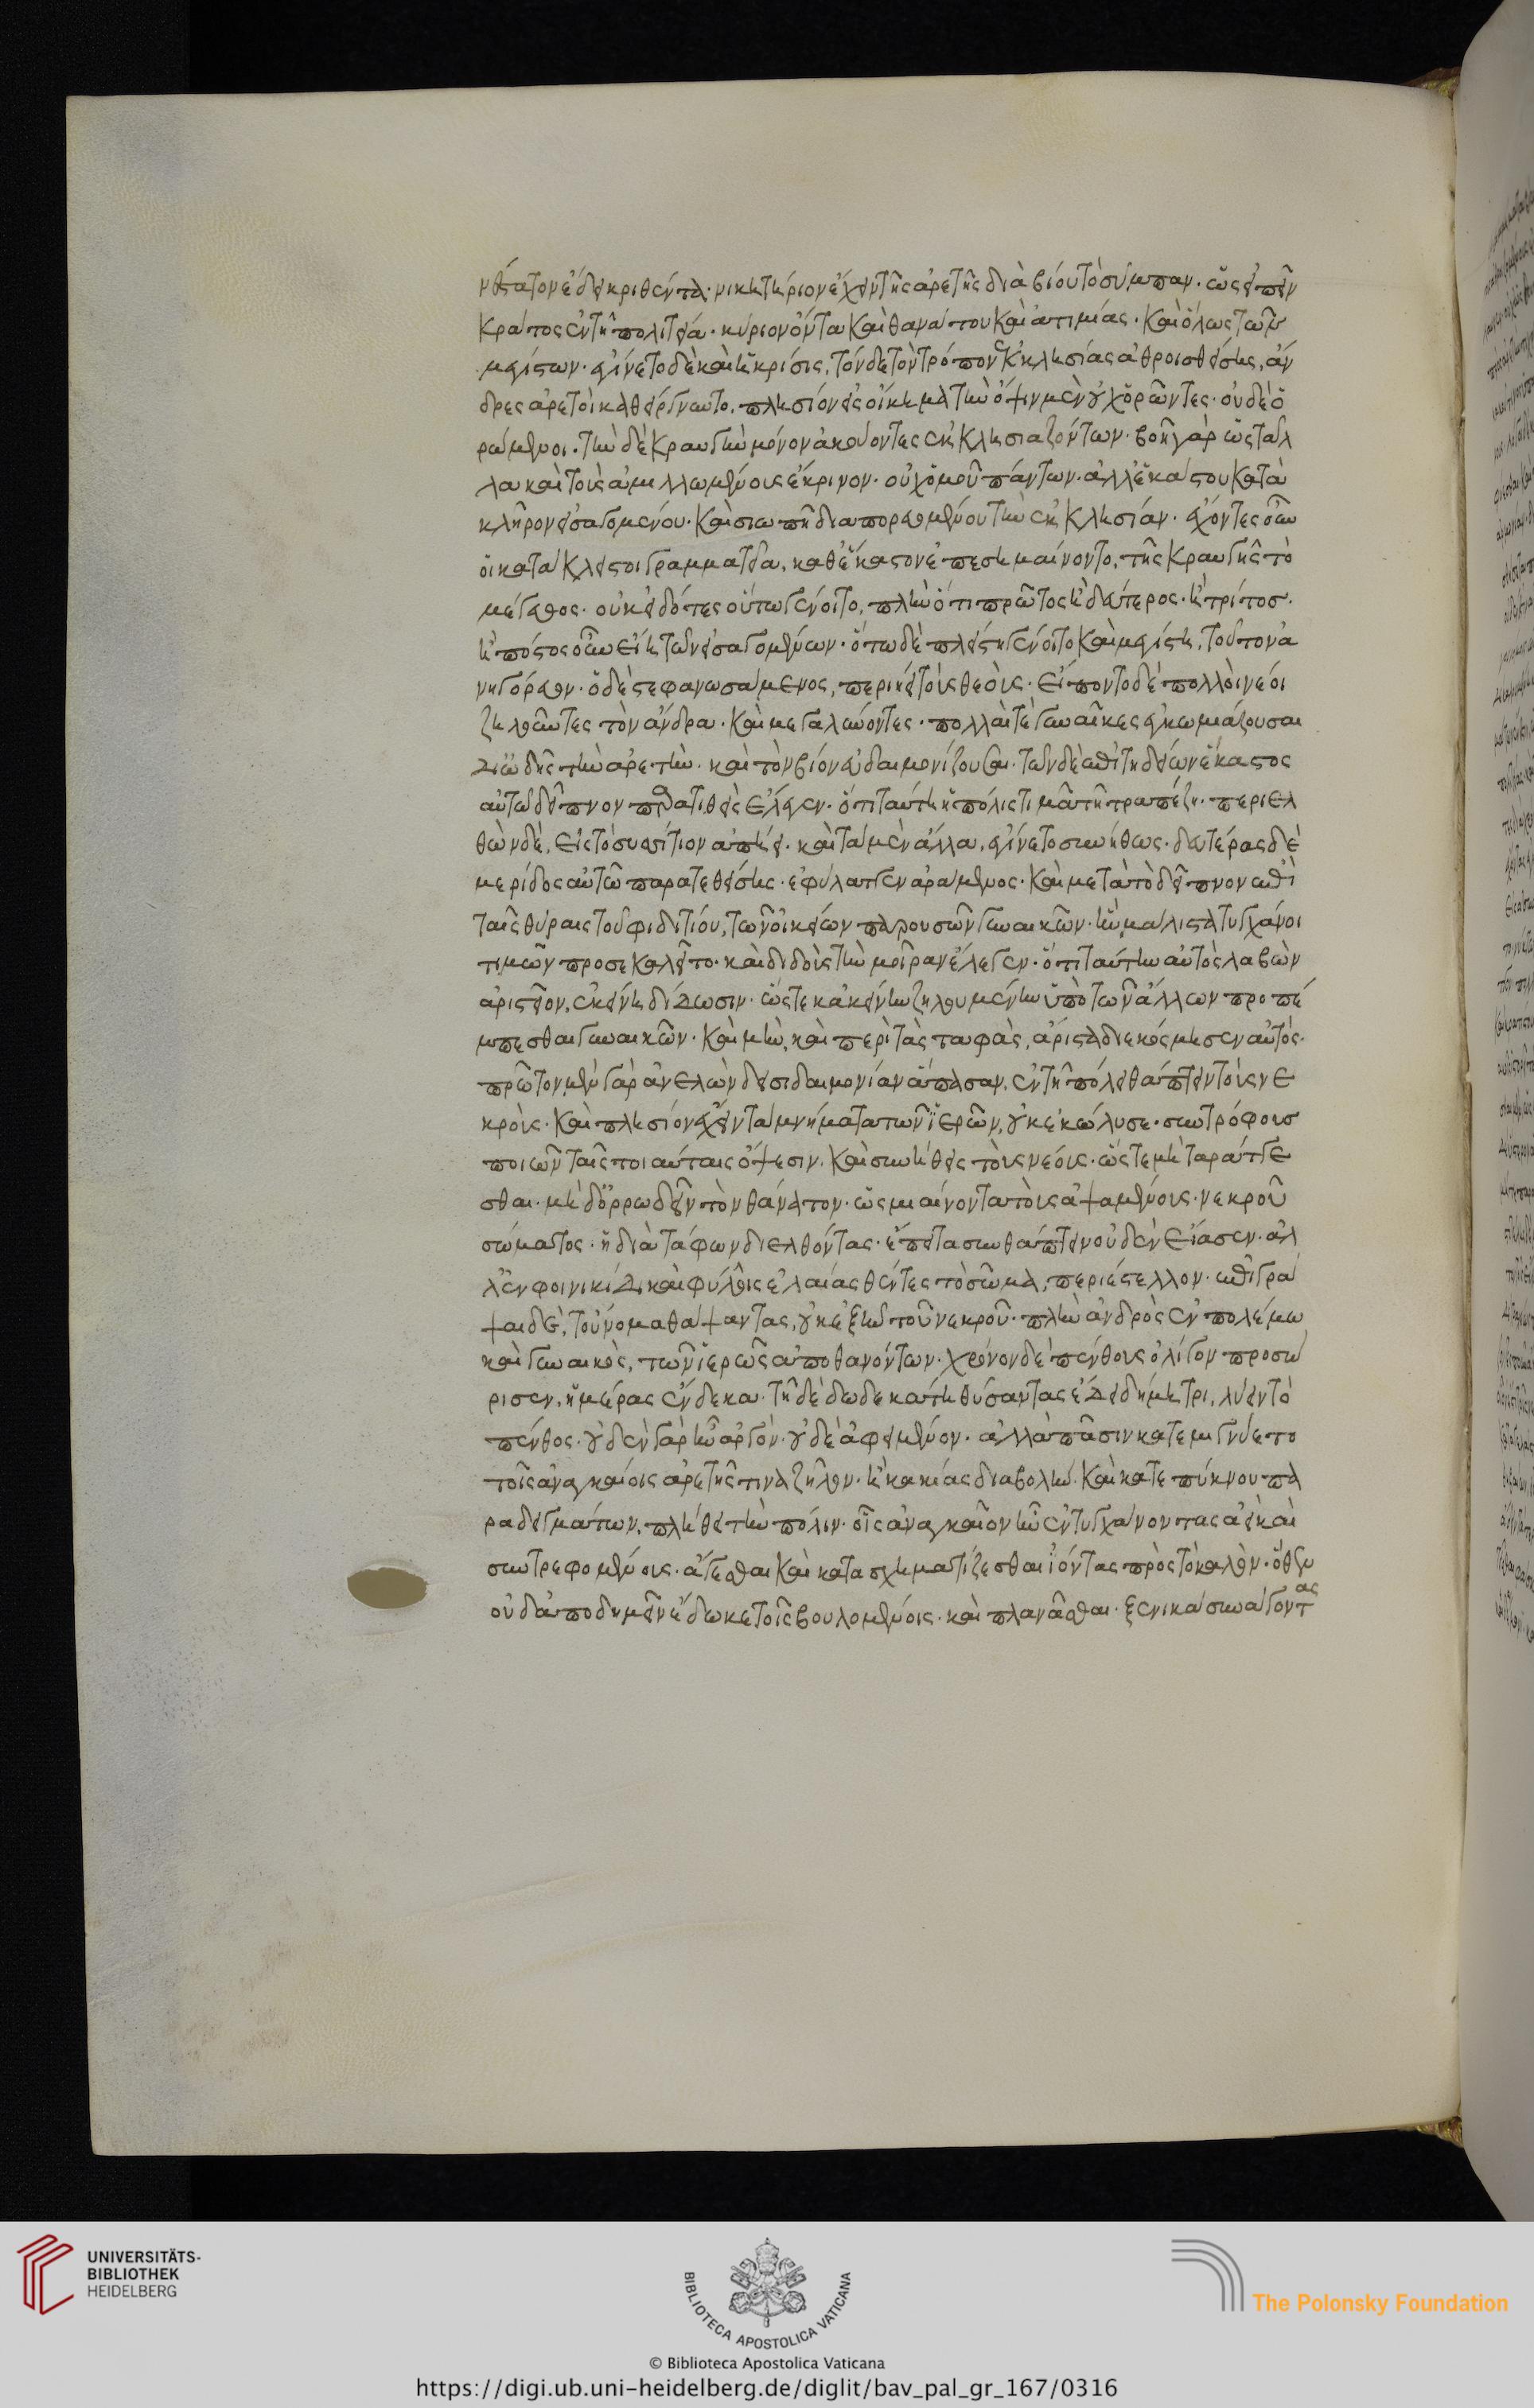 νέστατον ἔδει κριθέντα· νικητήριον ἔχειν τῆς ἀρετῆς διὰ βίου τὸ σύμπαν· ὡς εἰπεῖν
κράτος ἐν τῇ πολιτεία· κύριον ὄντα καὶ θανάτου καὶ ἀτιμίας· καὶ ὅλως τῶν
μεγίστων· ἐγίνετο δὲ καὶ ἡ κρίσις, τόνδε τὸν τρόπον ἐκκλησίας ἀθροισθείσης, ἄν
δρες αἱρετοὶ καθείργνυντο, πλησίον εἰς οἴκημα τὴν ὄψιν μὲν οὐχ ὁρῶντες· οὐδὲ ὁ
ρώμενοι· τὴν δὲ κραυγὴν μόνον ἀκούοντες ἐκκλησιαζόντων· βοῇ γὰρ ὡς τἆλ
λα καὶ τοὺς ἁμιλλωμένους ἔκρινον· οὐχ ὁμοῦ πάντων· ἀλλ' ἑκάστου κατὰ
κλῆρον εἰσαγομένου· καὶ σιωπῇ διαπορευομένου τὴν ἐκκλησίαν· ἔχοντες οὖν
οἱ κατάκλειστοι γραμματεῖα, καθ' ἕκαστον ἐπεσημαίνοντο, τῆς κραυγῆς τὸ
μέγεθος· οὐκ εἰδότες ὅτω γένοιτο, πλὴν ὅτι πρῶτος ἢ δεύτερος· ἢ τρίτος·
ἢ πόστος οὖν εἴη τῶν εἰσαγομένων· ὅτω δὲ πλείστη γένοιτο καὶ μεγίστη, τοῦτον ἀ
νηγόρευον· ὁ δὲ στεφανωσάμενος, περιήει τοὺς θεούς· εἵποντο δὲ πολλοὶ νέοι
ζηλοῦντες τὸν ἄνδρα· καὶ μεγαλύνοντες· πολλαὶ τὲ γυναῖκες ἐγκωμιάζουσαι
δι' ὠδῆς τὴν ἀρετήν· καὶ τὸν βίον εὐδαιμονίζουσαι· τῶν δὲ ἐπιτηδείων ἕκαστος
αὐτῶ δεῖπνον παρατιθεὶς ἔλεγεν· ὅτι ταύτη ἡ πόλις τιμᾶ τῆ τραπέζη· περιελ
θὼν δὲ, εἰς τὸ συσσίτιον ἀπήει· καὶ τὰ μὲν ἄλλα, ἐγίνετο συνήθως· δευτέρας δὲ
μερίδος αὐτῶ παρατεθείσης· ἐφύλαττεν ἀράμενος· καὶ μετὰ τὸ δεῖπνον ἐπὶ
ταῖς θύραις τοῦ φιδιτίου, τῶν οἰκείων παρουσῶν γυναικῶν· ἣν μάλιστα τυγχάνοι
τιμῶν προσεκαλεῖτο· καὶ διδοὺς τὴν μοῖραν ἔλεγεν· ὅτι ταύτην αὐτὸς λαβὼν
ἀριστεῖον, ἐκείνη δίδωσιν· ὥστε κἀκείνην ζηλουμένην ὑπὸ τῶν ἄλλων προπέ
μπεσθαι γυναικῶν· καὶ μὴν, καὶ περὶ τὰς ταφὰς, ἄριστα διεκόσμησεν αὐτός·
πρῶτον μὲν γὰρ ἀνελὼν δεισιδαιμονίαν ἅπασαν, ἐν τῇ πόλει θάπτειν τοὺς νε
κρούς· καὶ πλησίον ἔχειν τὰ μνήματα τῶν ἱερῶν, οὐκ ἐκώλυσε· συντρόφους
ποιῶν ταῖς τοιαύταις ὄψεσιν· καὶ συνήθεις τοὺς νέους· ὥστε μὴ ταράττε
σθαι· μὴδ' ὀρρωδεῖν τὸν θάνατον· ὡς μιαίνοντα τοὺς ἁψαμένους· νεκροῦ
σώματος· ἢ διὰ τάφων διελθόντας· ἔπειτα συνθάπτειν οὐδὲν εἴασεν· ἀλ
λ' ἐν φοινικίδι καὶ φύλλοις ἐλαίας θέντες τὸ σῶμα, περιέστελλον· ἐπιγρά
ψαι δὲ, τοὔνομα θάψαντας, οὐκ ἐξῆν τοῦ νεκροῦ· πλὴν ἀνδρὸς ἐν πολέμω
καὶ γυναικὸς, τῶν ἱερῶς ἀποθανόντων· χρόνον δὲ πένθους ὀλίγον προσώ
ρισεν, ἡμέρας ἕνδεκα· τῆ δὲ δωδεκάτη θύσαντας ἔδει δήμητρι, λύειν τὸ
πένθος· οὐδὲν γὰρ ἦν ἀργόν· οὐδὲ ἀφειμένον· ἀλλὰ πᾶσιν κατεμίγνυε το
τοῖς ἀναγκαίοις ἀρετῆς τινα ζῆλον· ἢ κακίας διαβολήν· καὶ κατεπύκνου πα
ραδειγμάτων, πλήθει τὴν πόλιν· οἷς ἀναγκαῖον ἦν ἐντυγχάνοντας ἀεὶ καὶ
συντρεφομένους· ἄγεσθαι καὶ κατασχηματίζεσθαι ἰόντας πρὸς τὸ καλόν· ὅθεν
οὐδ' ἀποδημεῖν ἔδωκε τοῖς βουλομένοις· καὶ πλανᾶσθαι· ξενικὰ συνάγοντας
UNIVERSITÄTS-
BIBLIOTHEK
HEIDELBERG
BIBLIOTECA APOSTOLICA VATICANA
The Polonsky Foundation
© Biblioteca Apostolica Vaticana
https://digi.ub.uni-heidelberg.de/diglit/bav_pal_gr_167/0316